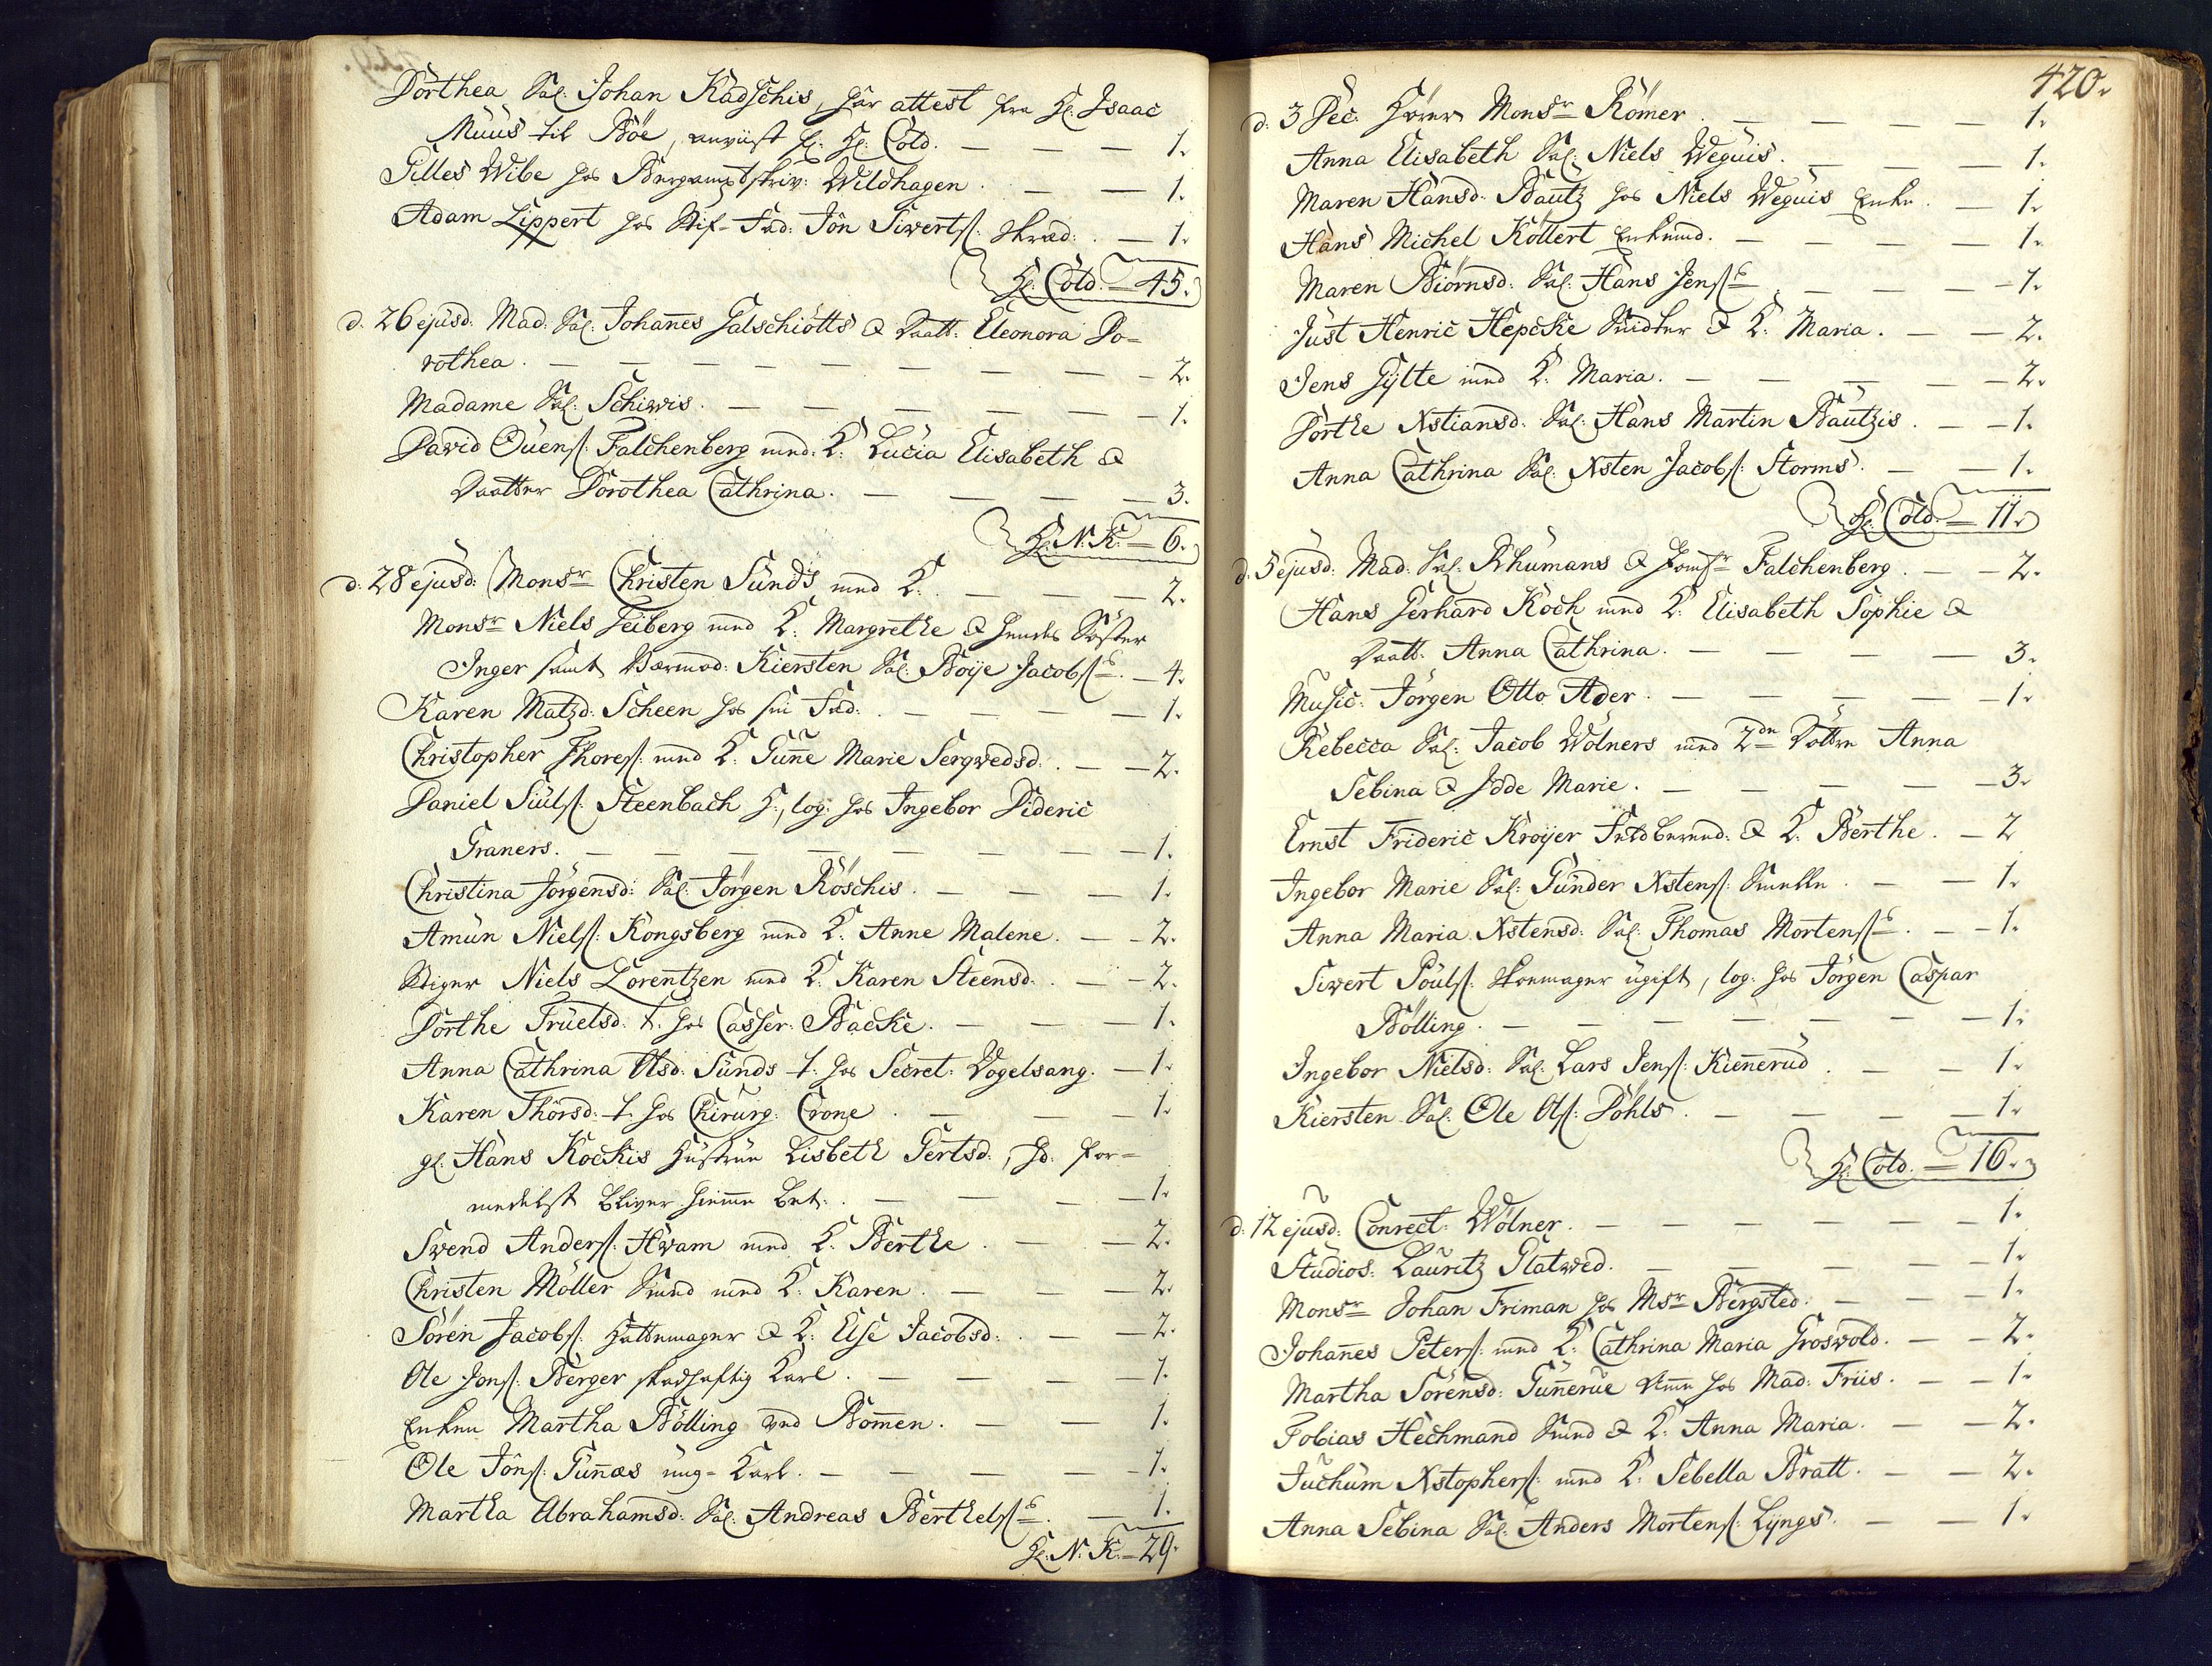 Dorthea Sal: Johan Radschis, har attest fra Hr: Isaac
Muus til Böe, anviist hr: Hr: Cold. — — — 1.
Gilles Wibe hos Bergamptskriv: Wildhagen. — — 1.
Adam Lippert hos Stif-Fad: Jön Siverts: Skræd: . — 1.
Hr: Cold. — 45.
d. 26 ejusd: Mad: Sal: Johannes Galschiötts & Daatt: Eleonora Do=
rothea. — — — — — — — — 2.
Madame Sal: Schiwis. — — — — — — 1.
David Ouens: Falchenberg med K: Lucia Elisabeth &
Daatter Dorothea Cathrina. — — — — 3.
Hr: N. K. — 6.
d. 28 ejusd: Monsr Christen Sunds med K. — — — 2.
Monsr Niels Feiberg med K: Margrethe & hendes Söster
Inger samt Værmod: Kiersten Sal: Boije Jacobss. — 4.
Karen Matzd: Scheen hos sin Fad: . — — — — 1.
Christopher Thores: med K: Gunne Marie Sergvedsd: . — — 2.
Daniel Siuls: Steenbach H:, log: hos Ingebor Dideric
Graners. — — — — — — — — 1.
Christina Jörgensd: Sal: Jörgen Röschis. — — — 1.
Amun Niels: Kongsberg med K: Anne Malene. — — 2.
Stiger Niels Lorentzen med K: Karen Steensd: . — — 2.
Dorthe Truelsd: t. hos Casser: Backe. — — — 1.
Anna Cathrina Olsd: Sunds t. hos Secret: Vogelsang. — 1.
Karen Thorsd: t. hos Chirurg: Crone. — — — 1.
gl: Hans Kockis Hustrue Lisbeth Gertsd:, hd. for=
medelst bliver hiemme bet: . — — — — 1.
Svend Anders: Hvam med K: Berthe. — — — 2.
Christen Möller Smed med K: Karen. — — — 2.
Sören Jacobs: Hattemager & K: Else Jacobsd: . — — 2.
Ole Jons: Berger stadhaftig Karl. — — — — 1.
Enken Martha Bölling ved Bommen. — — 1.
Ole Jöns: Gunnæs ung-Karl. — — — — — 1.
Martha Abrahamsd: Sal: Andreas Berthelss. — 1.
Hr: N: K: — 29.
420.
d. 3 Dec. Hörer Monsr Römer. — — — — — 1.
Anna Elisabeth Sal: Niels Weguis. — — — 1.
Maren Hansd: Bautz hos Niels Weguis Enke. — 1.
Hans Michel Köllert Enkemd. — — — — 1.
Maren Biörnsd: Sal: Hans Jenss. — — — — 1.
Just Henric Hepcke Snidker & K: Maria. — — 2.
Jens Gytte med K: Maria. — — — — — 2.
Dorthe Xstiansd: Sal: Hans Martin Bautzis. — — 1.
Anna Cathrina Sal: Xsten Jacobs: Storms. — — 1.
Hr: Cold. — 11.
d. 5 ejusd: Mad: Sal: Rhumans & Jomfr Falchenberg. — — 2.
Hans Gerhard Koch med K: Elisabeth Sophie &
Daatt: Anna Cathrina. — — — — 3.
Music: Jörgen Otto Ader. — — — — — 1.
Rebecca Sal: Jacob Wölners med 2de Döttre Anna
Sebina & Idde Marie. — — — — — 3.
Ernst Frideric Kroijer Feldbereed: & K. Berthe. — 2
Ingebor Marie Sal: Gunder Xstens: . — — 1.
Anna Maria Xstensd: Sal: Thomas Mortenss. — — 1.
Sivert Pouls: Skoemager ugift, log: hos Jörgen Caspar
Bölling. — — — — — — — 1.
Ingebor Nielsd: Sal: Lars Jens: Kiennerud. — — 1.
Kiersten Sal: Ole Ols: Döhls. — — — — 1.
Hr: Cold. — 16.
d. 12 ejusd: Conrect: Wölner. — — — — — — 1.
Studios: Lauritz Glatved. — — — — — 1.
Monsr Johan Friman hos Msr Bergsted. — — — 1.
Johannes Peters: med K: Cathrina Maria Groswold. — — 2.
Martha Sörensd: Gunnerue Amme hos Mad: Friis. — — 1.
Tobias Hechmand Smed & K: Anna Maria. — — 2.
Juchum Xstophers: med K: Sebella Bratt. — — 2.
Anna Sebina Sal: Anders Mortens: Lyngs. — — 1.